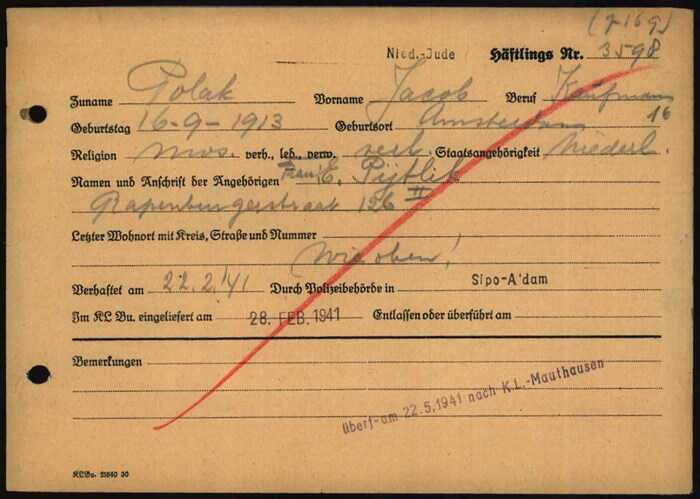 (7169)
Nied.-Jude Häftlings Nr. 3598
Zuname Polak Vorname Jacob Beruf Kaufmann
Geburtstag 16-9-1913 Geburtsort Amsterdam 16
Religion mos. verh., led., verw. verh. Staatsangehörigkeit Niederl.
Namen und Anschrift der Angehörigen Frau: E. Pijtlik
Rapenburgerstraat 126 II
Letzter Wohnort mit Kreis, Straße und Nummer
Wie oben!
Verhaftet am 22.2.'41 Durch Polizeibehörde in Sipo-A'dam
Im KL Bu. eingeliefert am 28. FEB. 1941 Entlassen oder überführt am
Bemerkungen
überf. am 22.5.1941 nach K.L.-Mauthausen
KLBu. 21840 30